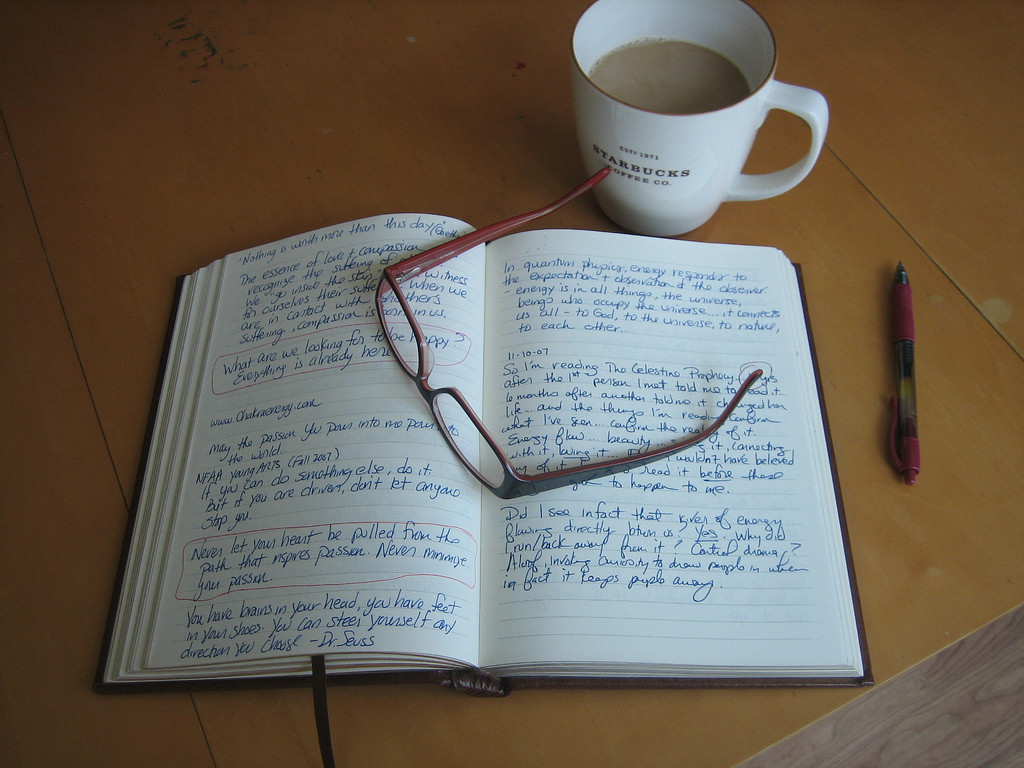 ESTD 1971
STARBUCKS
COFFEE CO.
"Nothing is worth more than this day" (Goethe
The essence of love + compassion
recognize the suffering of
We go inside the skin witness
to ourselves their suffe When we
are in contact with others
suffering, compassion is born in us.
What are we looking for to be happy?
Everything is already here
www.Chakraenergy.com
May the passion you pour into me pour to
the world.
NFAA young ARTS (Fall 2007)
If you can do something else, do it.
But if you are driven, don't let anyone
stop you.
Never let your heart be pulled from the
path that inspires passion. Never minimize
your passion.
You have brains in your head, you have feet
in your shoes. You can steer yourself any
direction you choose - Dr. Seuss
In quantum physics, energy responds to
the expectation + observation of the observer
energy is in all things, the universe,
beings who occupy the universe... it connects
us all - to God, to the universe, to nature,
to each other...
11-10-07
So I'm reading The Celestine Prophecy, yrs
after the 1st person I met told me to read it...
6 months after another told me it changed her
life... and the things I'm read confirm
what I've seen... confirm the reality of it.
Energy flow... beauty... it, connecting
with it, loving it... wouldn't have believed
any of it read it before these
to happen to me.
Did I see in fact that rivers of energy
flowing directly btwn us. Yes. Why did
I run/back away from it? Control drama?
Aloof, invoking curiosity to draw people in when
in fact it keeps people away.